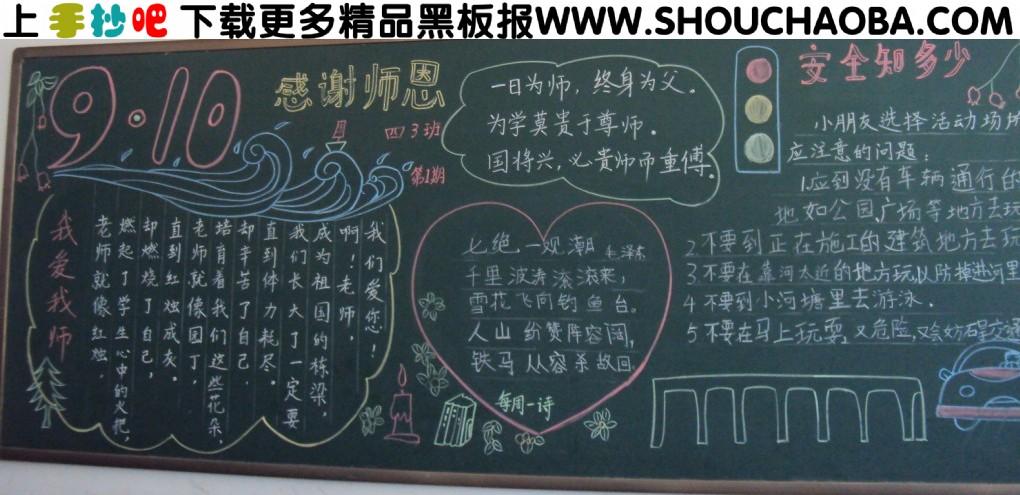 上手抄吧下载更多精品黑板报WWW.SHOUCHAOBA.COM
9·10
感谢师恩
四3班
第1期
我爱我师
老师就像红烛,
燃起了学生心中的火把,
却燃烧了自己,
直到红烛成灰。
老师就像园丁,
培育着我们这些花朵
却辛苦了自己.
直到体力耗尽。
我们长大了一定要
成为祖国的栋梁,
啊!老师,
我们爱您!
一日为师,终身为父。
为学莫贵于尊师。
国将兴,必贵师而重傅。
七绝.观潮 毛泽东
千里波涛滚滚来,
雪花飞向钓鱼台。
人山纷赞阵容阔,
铁马从容杀敌回。
每周一诗
安全知多少
小朋友选择活动场
应注意的问题:
1.应到没有车辆通行的
地如公园,广场等地方去玩
2.不要到正在施工的建筑地方去玩
3.不要在靠河太近的地方玩以防掉进河里
4 不要到小河塘里去游泳.
5 不要在马上玩耍,又危险,又会妨碍交通